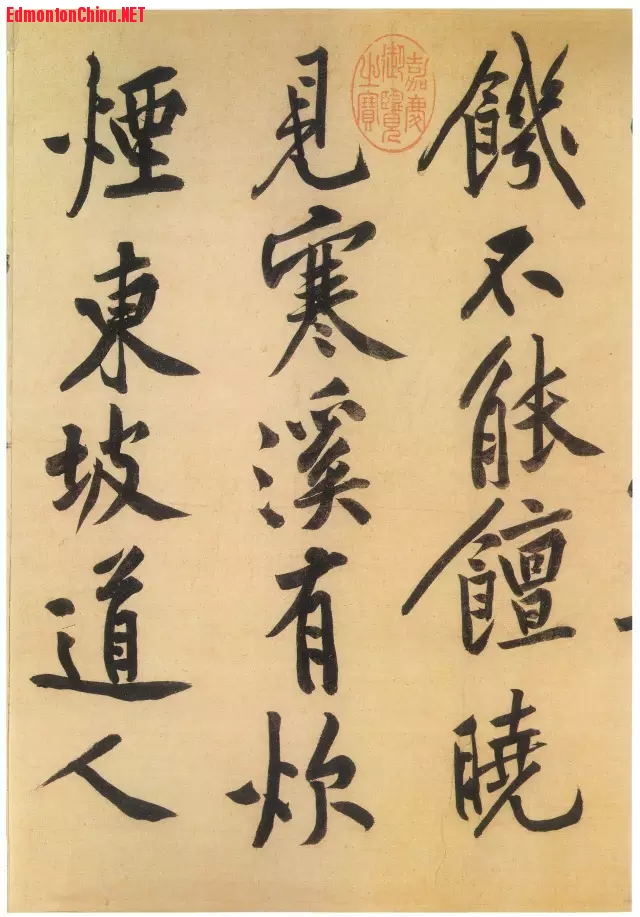 EdmontonChina.NET
饑不能饘曉
見寒溪有炊
煙東坡道人
嘉慶
御覽
之寶